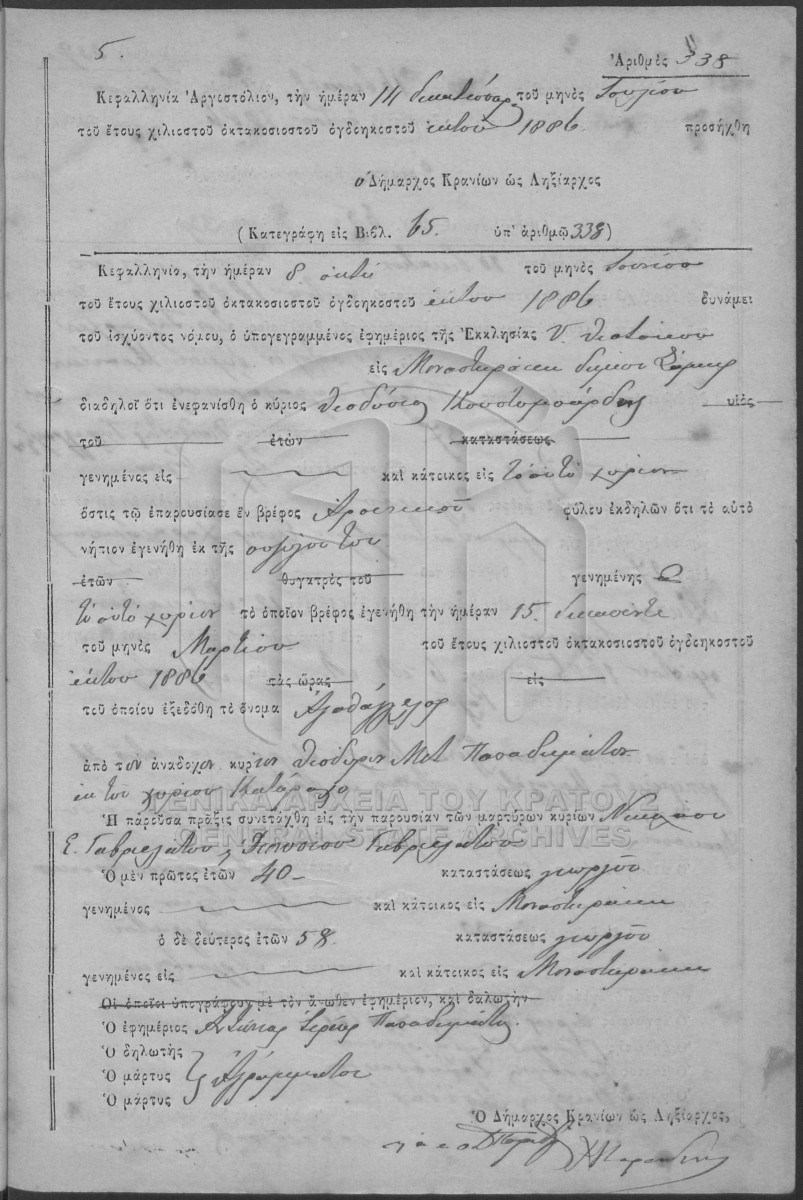 5.
Ἀριθμὸς 338
Κεφαλληνία Ἀργοστόλιον, τὴν ἡμέραν 14 δεκατέσσαρ τοῦ μηνὸς Ἰουλίου
τοῦ ἔτους χιλιοστοῦ ὀκτακοσιοστοῦ ὀγδοηκοστοῦ ἕκτου 1886 προσήχθη
ὁ Δήμαρχος Κρανίων ὡς Ληξίαρχος
(Κατεγράφη εἰς Βιβλ. 65. ὑπ' ἀριθμῷ 338)
Κεφαλληνία, τὴν ἡμέραν 8 ὀκτὼ τοῦ μηνὸς Ἰουνίου
τοῦ ἔτους χιλιοστοῦ ὀκτακοσιοστοῦ ὀγδοηκοστοῦ ἕκτου 1886 δυνάμει
τοῦ ἰσχύοντος νόμου, ὁ ὑπογεγραμμένος ἐφημέριος τῆς Ἐκκλησίας Υ. Θεοτόκου
εἰς Μοναστηράκι δήμου Σάμης
διαδηλοῖ ὅτι ἐνεφανίσθη ὁ κύριος Θεοδόσιος υἱὸς
τοῦ ἐτῶν καταστάσεως
γενημένος εἰς καὶ κάτοικος εἰς τὸ αὐτὸ χωρίον
ὅστις τῷ ἐπαρουσίασε ἓν βρέφος Ἀρσενικοῦ φύλου ἐκδηλῶν ὅτι τὸ αὐτὸ
νήπιον ἐγενήθη ἐκ τῆς συζύγου του
ἐτῶν θυγατρὸς τοῦ γενημένης
τὸ αὐτὸ χωρίον τὸ ὁποῖον βρέφος ἐγενήθη τὴν ἡμέραν 15. δεκαπέντε
τοῦ μηνὸς Μαρτίου τοῦ ἔτους χιλιοστοῦ ὀκτακοσιοστοῦ ὀγδοηκοστοῦ
ἕκτου 1886 τὰς ὥρας εἰς
τοῦ ὁποίου ἐξεδόθη τὸ ὄνομα Ἀγαθάγγελος
ἀπὸ τὸν ἀνάδοχον κύριον Θεόδωρον Μετ Παπαδημάτον
ἐκ τοῦ χωρίου
ΓΕΝΙΚΑ ΑΡΧΕΙΑ ΤΟΥ ΚΡΑΤΟΥΣ
GENERAL STATE ARCHIVES
Ἡ πάρουσα πρᾶξις συνετάχθη εἰς τὴν παρουσίαν τῶν μαρτύρων κυρίων Νικολάου
Ε. Γαβριελάτου Διονυσίου Γαβριελάτου
Ὁ μὲν πρῶτος ἐτῶν 40 καταστάσεως γεωργοῦ
γενημένος καὶ κάτοικος εἰς Μοναστηράκι
ὁ δὲ δεύτερος ἐτῶν 58 καταστάσεως γεωργοῦ
γενημένος εἰς καὶ κάτοικος εἰς Μοναστηράκι
Οἱ ὁποῖοι ὑπογράφουν μὲ τὸν ἄνωθεν ἐφημέριον, καὶ δηλωτὴν
Ὁ ἐφημέριος Ἀντώνιος Ἱερεὺς Παπαδημάτος
Ὁ δηλωτὴς
Ὁ μάρτυς Ἀγράμματοι
Ὁ μάρτυς
Ὁ Δήμαρχος Κρανίων ὡς Ληξίαρχος,